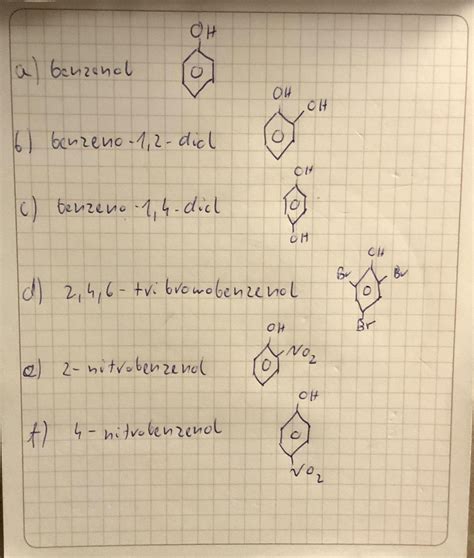 OH
a) benzenol
OH
OH
b) benzeno-1,2-diol
OH
c) benzeno-1,4-diol
OH
OH
Br Br
d) 2,4,6-tribromobenzenol
Br
OH
NO2
e) 2-nitrobenzenol
OH
f) 4-nitrobenzenol
NO2